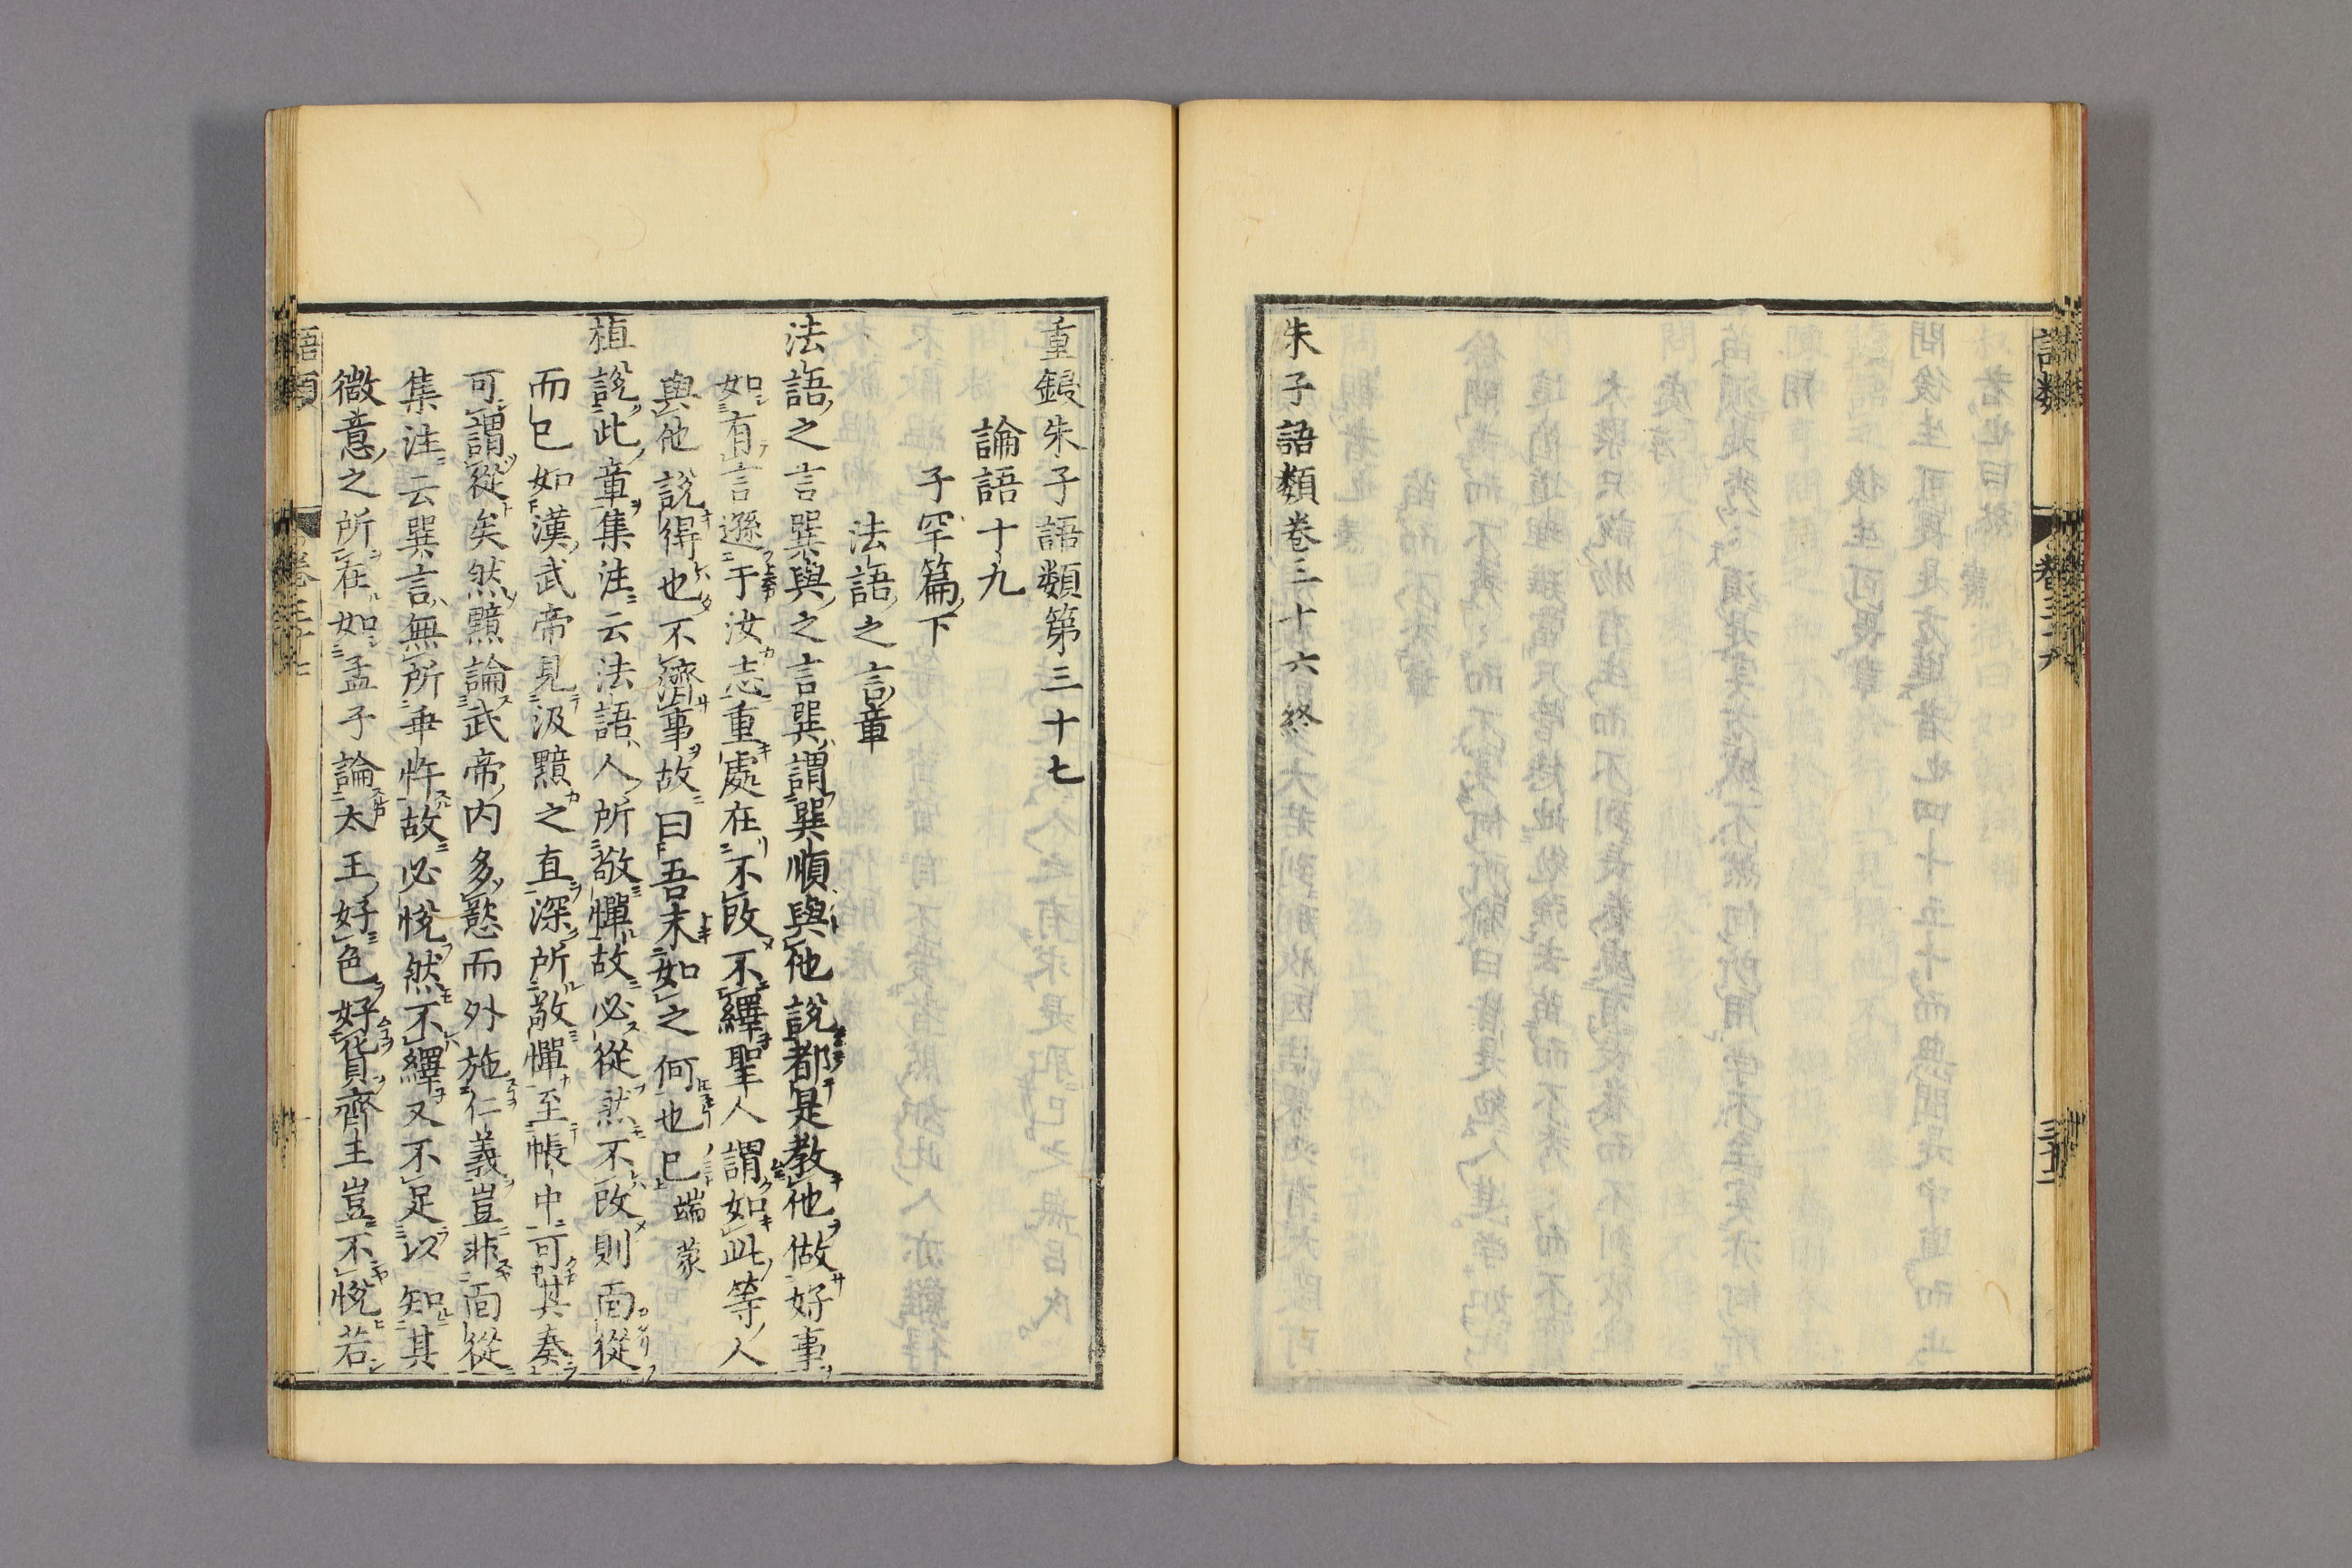 語類
卷三十六
三十二
朱子語類卷三十六終
重鋟朱子語類第三十七
論語十九
子罕篇下
法語之言章
法語之言巽與之言巽謂巽順與他說都是教他做好事
如有言遜于汝志重處在不改不繹聖人謂如此等人
與他說得也不濟事故曰吾末如之何也已端蒙
植說此章集注云法語人所敬憚故必從然不改則面從
而已如漢武帝見汲黯之直深所敬憚至帳中可其奏
可謂從矣然黯論武帝內多慾而外施仁義豈非面從
集注云巽言無所乖忤故必悅然不繹又不足以知其
微意之所在如孟子論太王好色好貨齊王豈不悅若
語類
卷三十七